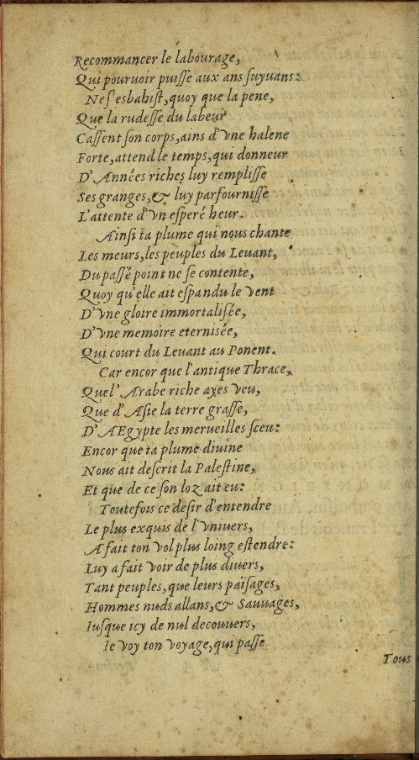 Recommancer le labourage,
Qui pouruoir puisse aux ans suyuans:
Ne s'esbahist, quoy que la pene,
Que la rudesse du labeur
Cassent son corps, ains d'vne halene
Forte, attend le temps, qui donneur
D'Années riches luy remplisse
Ses granges, & luy parfournisse
L'attente d'vn esperé heur.
Ainsi ta plume qui nous chante
Les meurs, les peuples du Leuant,
Du passé point ne se contente,
Quoy qu'elle ait espandu le vent
D'vne gloire immortalisée,
D'vne memoire eternisée,
Qui court du Leuant au Ponent.
Car encor que l'antique Thrace,
Quel' Arabe riche ayes veu,
Que d'Asie la terre grasse,
D'AEgypte les merueilles sceu:
Encor que ta plume diuine
Nous ait descrit la Palestine,
Et que de ce son loz ait eu:
Toutefois ce desir d'entendre
Le plus exquis de l'vniuers,
A fait ton vol plus loing estendre:
Luy a fait voir de plus diuers,
Tant peuples, que leurs païsages,
Hommes nuds allans, & Sauuages,
Iusque icy de nul decouuers,
Ie voy ton voyage, qui passe
Tous